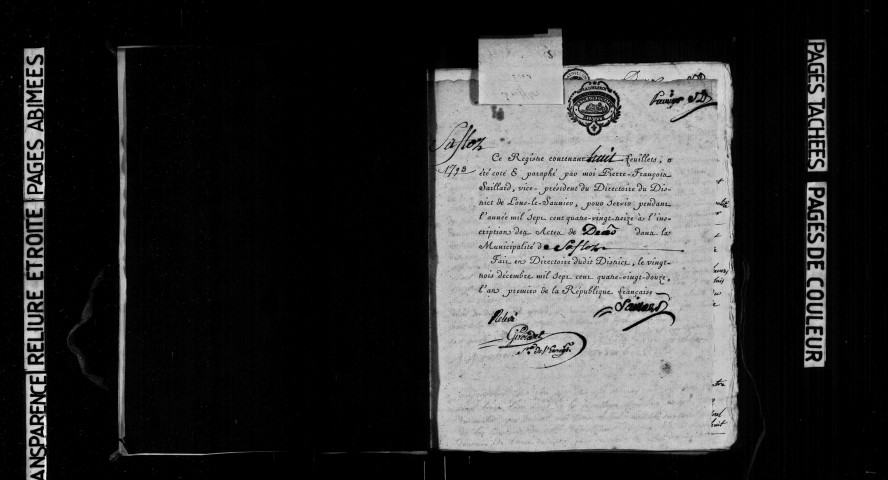 PAGES ABIMEES
RELIURE ETROITE
ANSPARENCE
PAGES TACHEES
PAGES DE COULEUR
1793
Ce Registre contenant huit feuillets, a
été coté & paraphé par moi Pierre-François
Saillard, vice-président du Directoire du Dis-
trict de Lons-le-Saunier, pour servir pendant
l'année mil sept cent quatre-vingt-treize à l'ins-
cription des Actes de Décès dans la
Municipalité de
Fait en Directoire dudit District, le vingt-
trois décembre mil sept cent quatre-vingt-douze,
l'an premier de la République française
Saillard